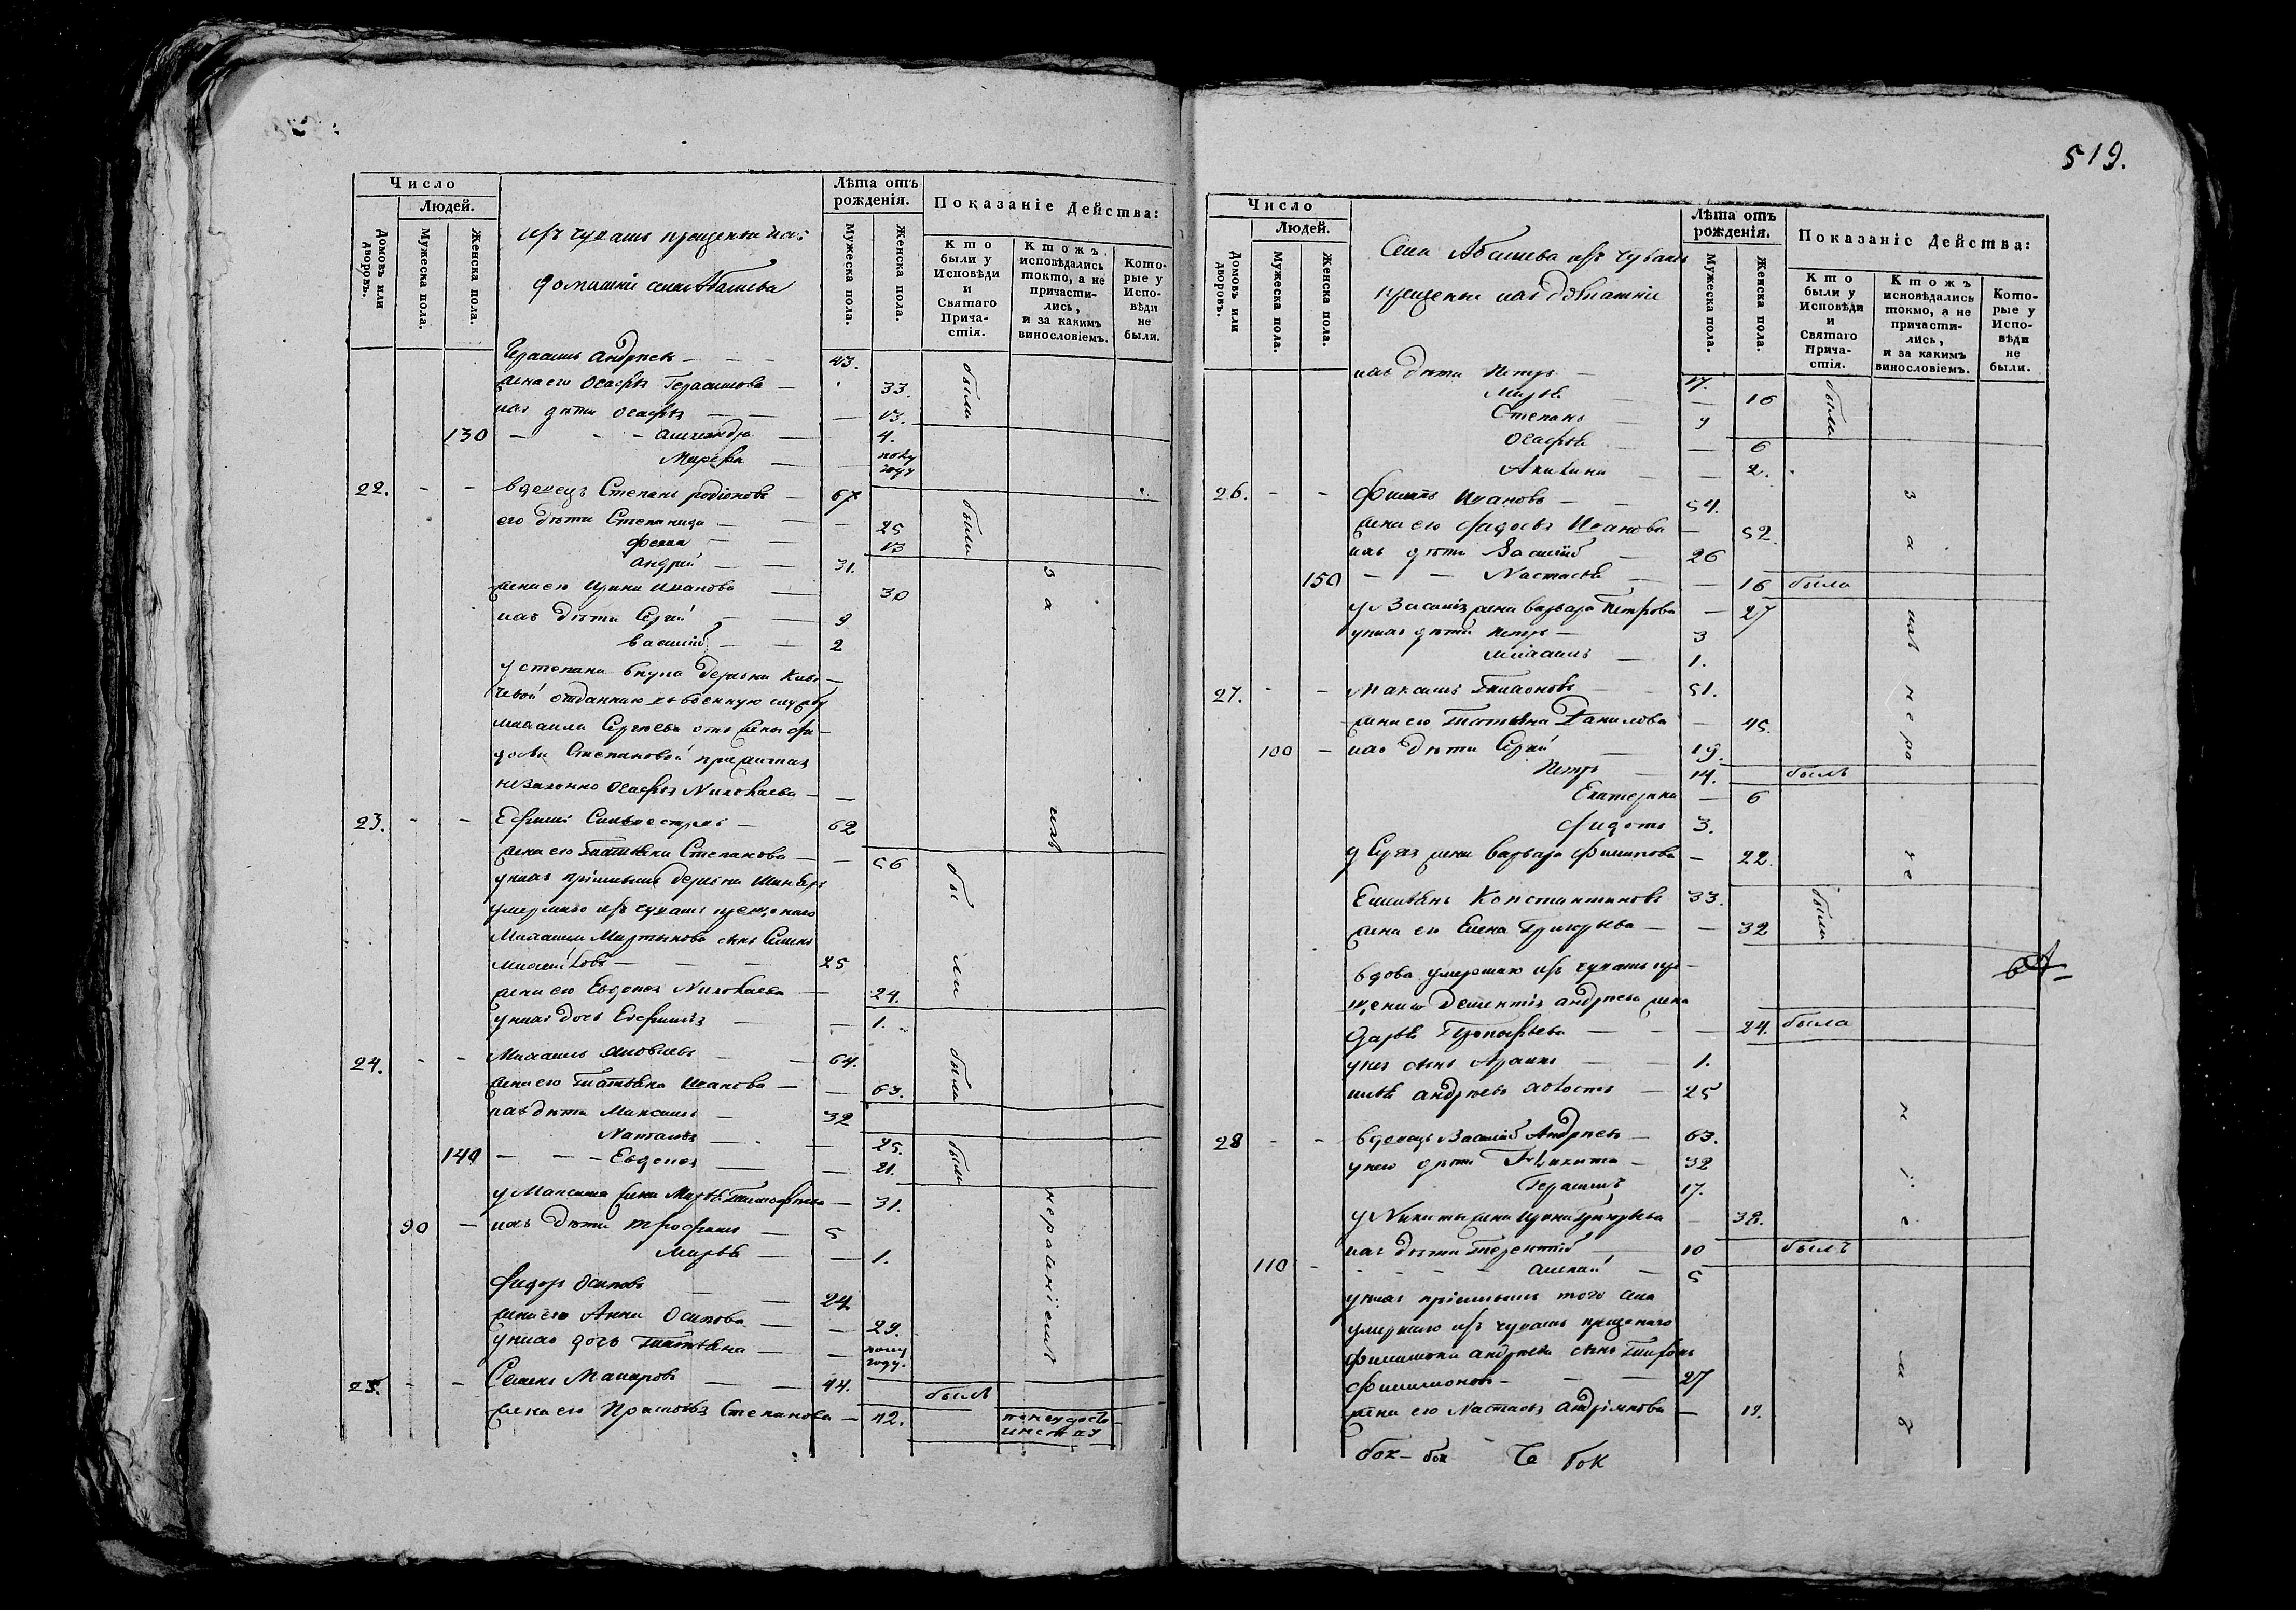 Число
Людей.
Домовъ или дворовъ.
Мужеска пола.
Женска пола.
изъ чувашъ крещеныи ихъ
домашніи села Абашева
Лѣта отъ рожденія.
Мужеска пола.
Женска пола.
Показаніе Действа:
Кто были у Исповѣди и Святаго Причастія.
Ктожъ исповѣдались токмо, а не причастились, и за какимъ винословіемъ.
Которые у Исповѣди не были.
Андреевъ — — — 43.
жена его Агафья Герасимова — 33. были
ихъ дѣти Агафья — — 13.
130 — — — Александра — 4.
Марфа — — полу году
22. - - вдовецъ Степанъ родіоновъ — 67
его дѣти Степанида — — 25 были
Фекла — — 13
Андрей — — 31.
жена его Ирина Иванова — 30
ихъ дѣти Сергей — — 9
василій — — 2
у степана внука деревни
отданнаго въ военную службу
михаила Сергеева отъ жены Фе-
досьи Степановой прижитая
незаконно Агафья Николаева — —
23. - - Ефимъ Сильвестровъ — 62
жена его Татьяна Степанова — — 56 были
умершаго изъ чувашъ крещенаго
Михаила Мартынова сынъ Семенъ
Михайловъ — — — 25
жена его Евдокея Николаева — 24.
у нихъ дочь Евфимія — — 1.
24. - - Михаилъ Яковлевъ — — 64. были
жена его Татьяна Иванова — — 63.
ихъ дѣти Максимъ — 32
Наталья — — 25. были
140 — — — Евдокея — — 21.
у Максима жена Марья Тимофеева — 31.
90 — ихъ дѣти трофимъ — 5
Марья — — 1.
Федоръ Осиповъ — — 24.
жена его Анна Осипова — — 29.
у нихъ дочь Татьяна — — полу году.
25. - - Семенъ Макаровъ — — 44. былъ
жена его Прасковья Степанова — 42.
за ихъ нераченіемъ
519.
Число
Людей.
Домовъ или дворовъ.
Мужеска пола.
Женска пола.
Села Абашева изъ чувашъ
крещеныи ихъ домашніи
Лѣта отъ рожденія.
Мужеска пола.
Женска пола.
Показаніе Действа:
Кто были у Исповѣди и Святаго Причастія.
Ктожъ исповѣдались токмо, а не причастились, и за какимъ винословіемъ.
Которые у Исповѣди не были.
ихъ дѣти Петръ — 17. были
Марья — — 16
Степанъ — 9
Агафья — — 6
Акилина — — 2.
26. - - Филипъ Ивановъ — — 54.
жена его Федосья Иванова — 52.
ихъ дѣти Василій — 26
150 — — Настасья — — 16 была
у Василія жена варвара Петрова — 27
у нихъ дѣти Петръ — 3
михаилъ — 1.
27. - - Максимъ 51.
жена его Татьяна Данилова — 45.
100 — ихъ дѣти Сергей — 19.
Петръ — 14. былъ
Екатерина — 6
Федотъ 3.
у Сергея жена варвара Филипова — 22.
Константиновъ 33. были
жена его Елена Григорьева — — 32
вдова умершаго изъ чувашъ кре-
щенаго Дементія андреева жена
Дарья Прокофьева — — — 24. была
у нея сынъ — — 1.
андреевъ — 25
28 - - вдовецъ Василій Андреевъ — 63.
у него дѣти Никита — 32
Герасимъ 17.
у Никиты жена Ирина Григорьева — 38.
ихъ дѣти Терентій — 10 былъ
110 - - - - Алексей — 5
у нихъ пріемышъ того села
умершаго изъ чувашъ крещенаго
Филимона андреева сынъ
Филимоновъ — — — 27
жена его Настасья — 19.
за ихъ нераченіемъ